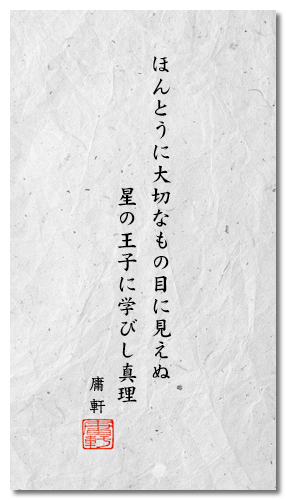 ほんとうに大切なもの目に見えぬ
星の王子に学びし真理
庸軒